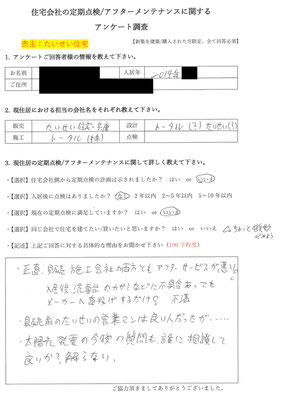 住宅会社の定期点検/アフターメンテナンスに関する
アンケート調査
売主：たいせい住宅
【新築を建築/購入された方限定、全て回答必須】
1. アンケートご回答者様の情報を教えて下さい。
お名前
入居年
2014年
ご住所
2. 現住居における担当の会社名をそれぞれ教えて下さい。
販売
たいせい住宅
設計
トータル (?) たいせい(?)
施工
トータル
点検
3. 現住居の定期点検/アフターメンテナンスに関して詳しく教えて下さい。
・【選択】ご住宅会社側から定期点検の計画は示されましたか？ はい or いいえ
・【選択】入居後に点検はありましたか？ なし 2年以内 2～5年以内 5～10年以内
・【選択】現在の定期点検に満足していますか？ はい or いいえ
・【選択】同じ会社で住宅を建てたい/買いたいと思いますか？ はい or いいえ △ちょっと
・【記述】上記ご回答に対する具体的な理由をお聞かせ下さい（100字程度）
・正直、販売 施工会社の両方ともアフターサービスが悪い。
入居後、洗面台のカガミなどに不具合あっても
メーカーへ直投げするだけ？ 不満
・販売前のたいせいの営業マンは良い人だったが……
・太陽光発電の今後の質問も、誰に相談して
良いか？解らない。
ご協力頂きましてありがとうございました。